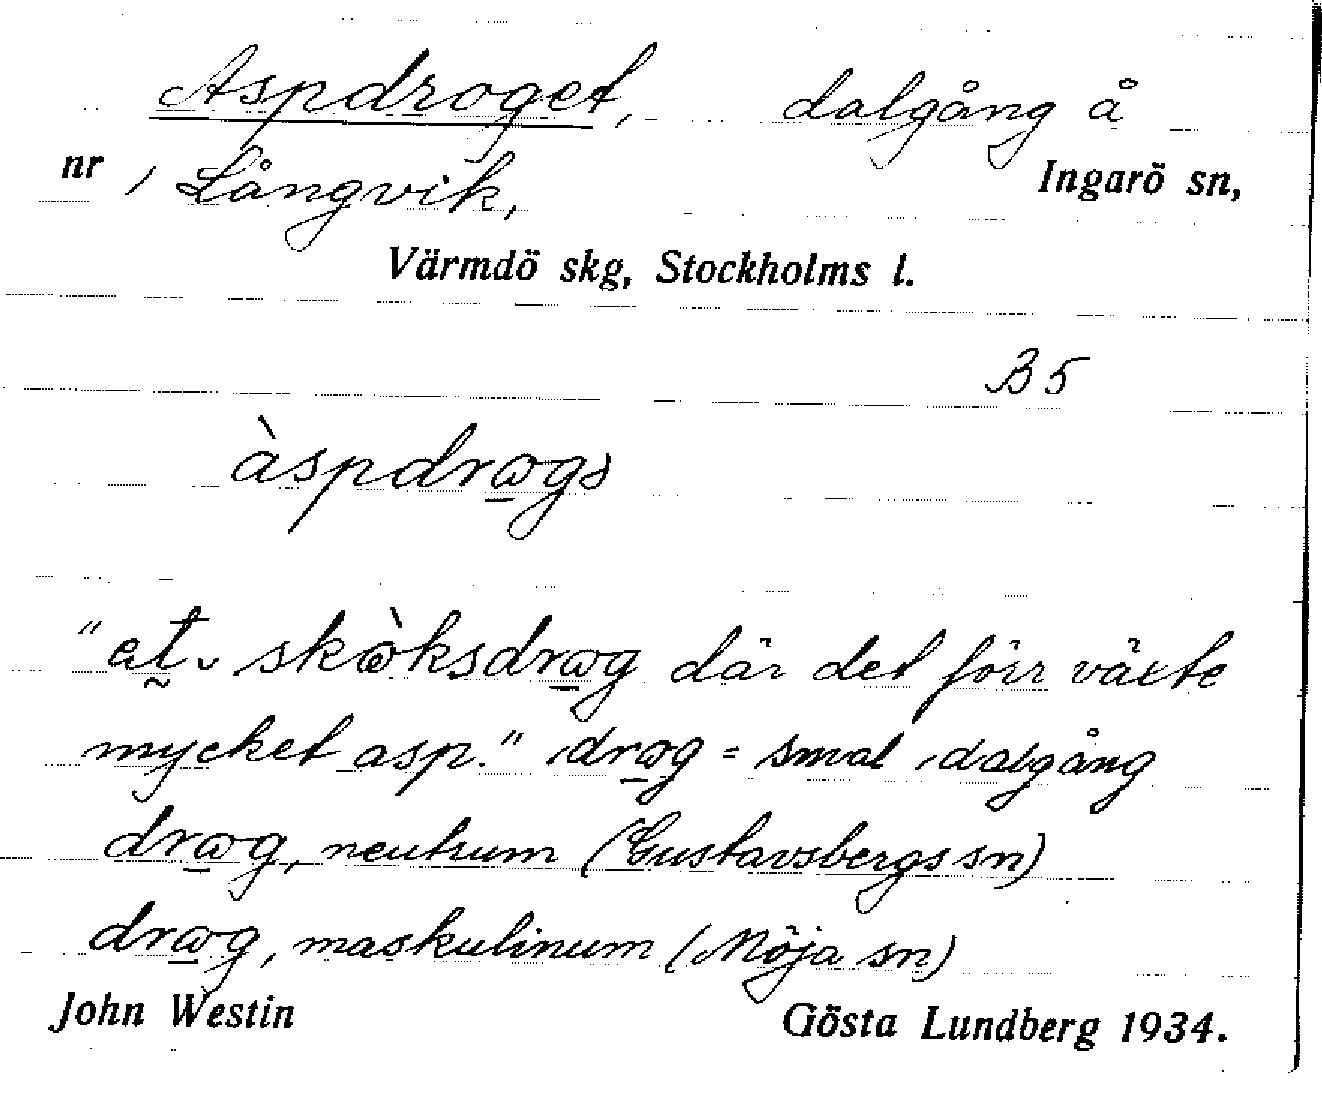 Aspdroget, dalgång å
nr 1 Långvik, Ingarö sn,
Värmdö skg, Stockholms l.
B5
àspdrωgə
"et skὼksdrωg där det förr växte
mycket asp." drωg = smal dalgång
drωg, neutrum (Gustavsbergs sn)
drωg, maskulinum (Möja sn)
John Westin Gösta Lundberg 1934.